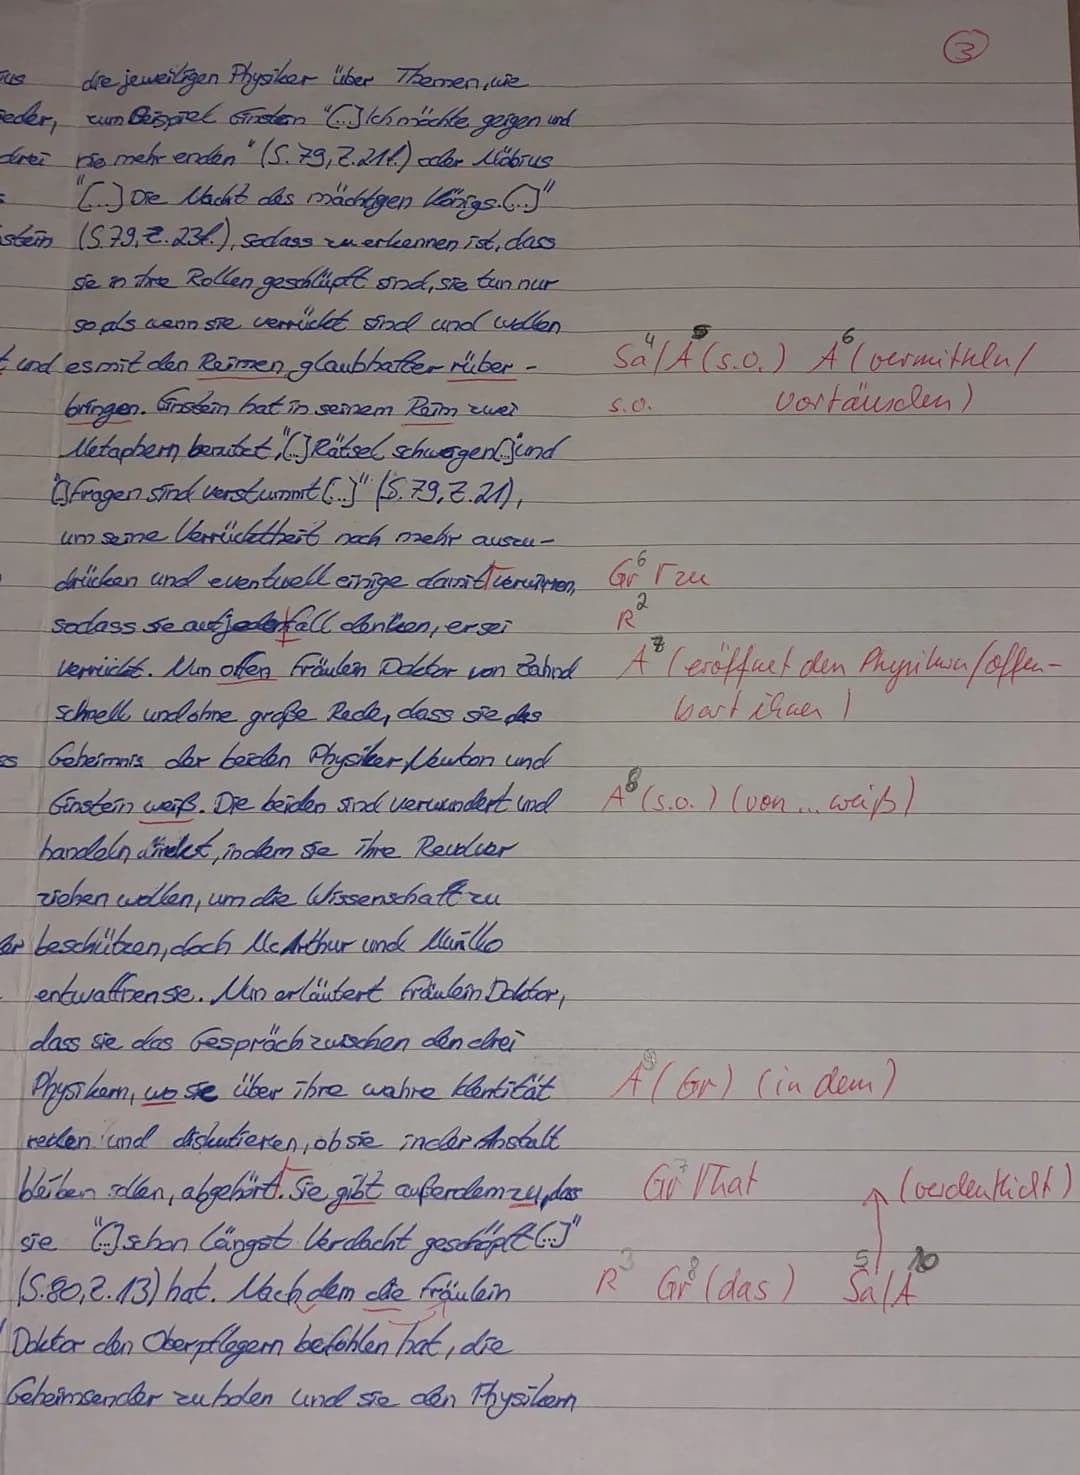 3
die jeweiligen Physiker über Themen, wie
eder, zum Beispiel Einstein "(...] Ich möchte geigen und
drei nie mehr enden" (S. 79, Z. 21f.) oder Möbius
"[...] Die Macht des mächtigen Königs. (...)"
stein (S. 79, Z. 23f.), sodass zu erkennen ist, dass
sie in ihre Rollen geschlüpft sind, sie tun nur
so als wenn sie verrückt sind und wollen
und es mit den Reimen glaubhafter rüber- Sä4/A5 (s.o.) A6 (vermitteln/
bringen. Einstein hat in seinem Reim zwei s.o. vortäuschen)
Metaphern benutzt, "(...] Rätsel schweigen (...]" und
"[...] Fragen sind verstummt [...]" (S. 79, Z. 21),
um seine Verrücktheit noch mehr auszu-
drücken und eventuell einige damit verwirren, Gr6 Γ zu
sodass sie auf jedenfall denken, er sei R2
verrückt. Nun offen Fräulein Doktor von Zahnd A7 (eröffnet den Physikern/offen-
schnell und ohne große Rede, dass sie das bart ihnen)
ss Geheimnis der beiden Physiker, Newton und
Einstein weiß. Die beiden sind verwundert und A8 (s.o.) (von ... weiß)
handeln direkt, indem sie ihre Revolver
ziehen wollen, um die Wissenschaft zu
beschützen, doch McArthur und Murillo
entwaffnen sie. Nun erläutert Fräulein Doktor,
dass sie das Gespräch zwischen den drei
Physikern, wo sie über ihre wahre Identität A9 (Gr) (in dem)
reden und diskutieren, ob sie in der Anstalt
bleiben sollen, abgehört. Sie gibt außerdem zu, das Gr7 Γhat (verdeutlicht)
sie "(...] schon längst Verdacht geschöpft (...]"
(S. 80, Z. 13) hat. Nach dem die Fräulein R3 Gr8 (das) Sä5/A10
Doktor den Oberpflegern befohlen hat, die
Geheimsender zu holen und sie den Physikern